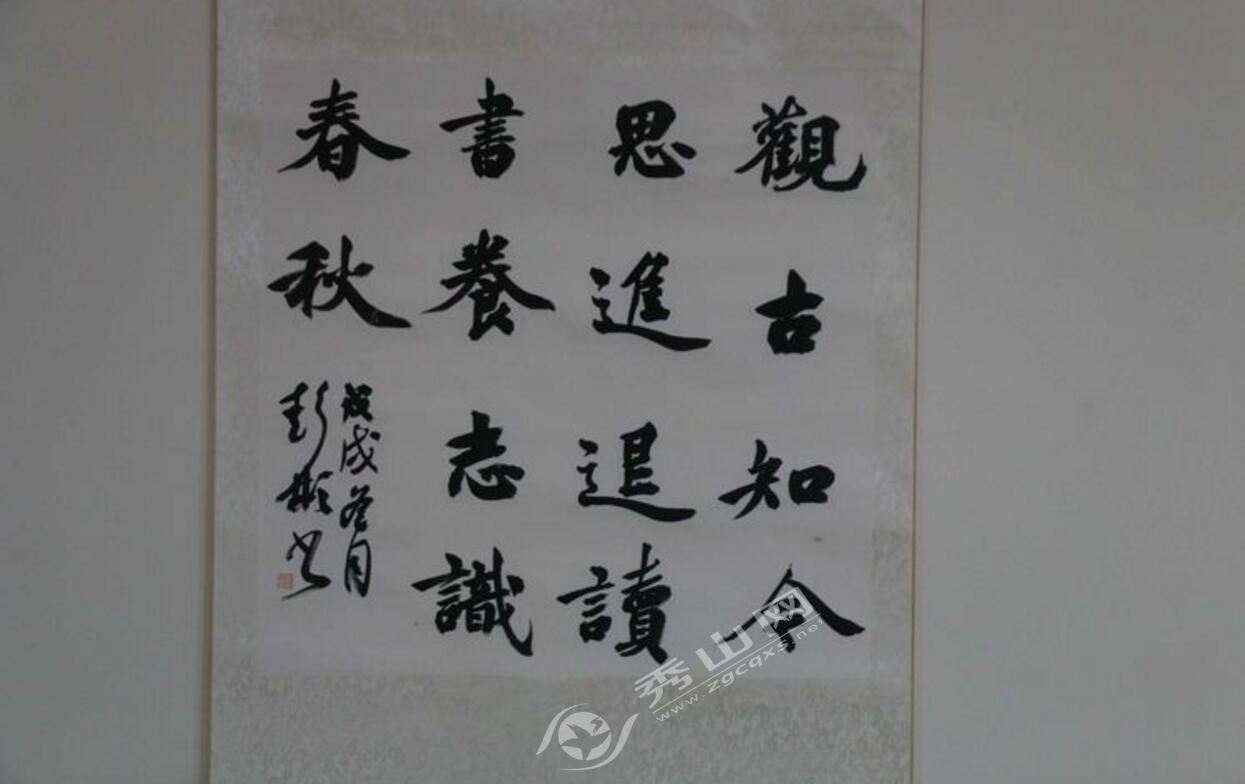 觀古知今
思進退讀
書養志識
春秋
戊戌冬月
彭彬书
秀山网
www.zgcqxs.net